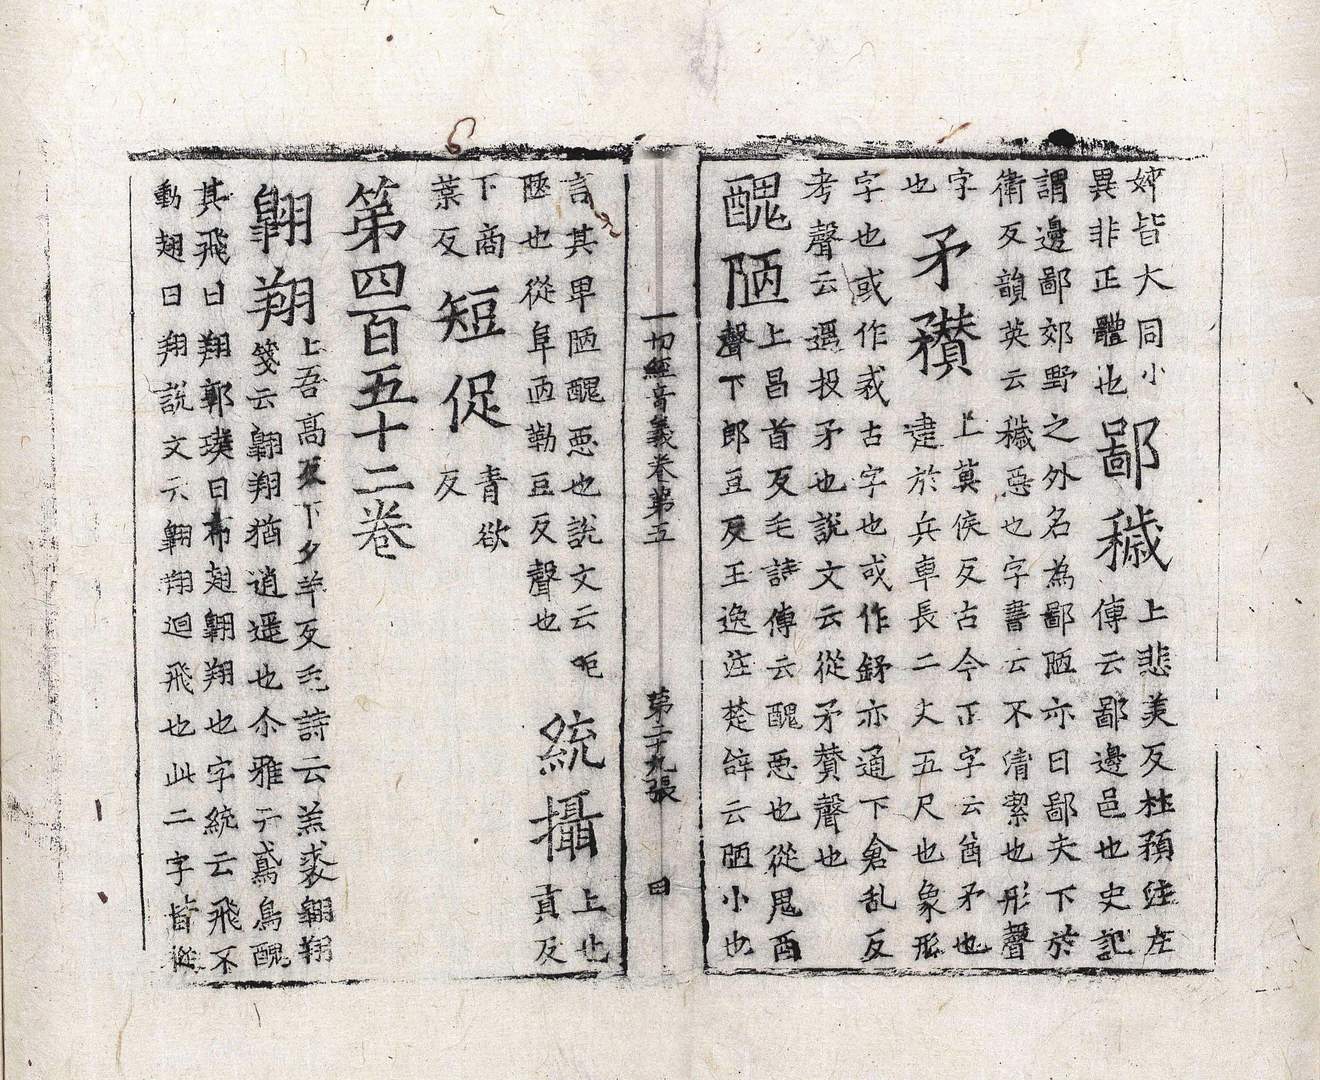 皆大同小
異非正體也
鄙穢
上悲美反杜預注左
傳云鄙邊邑也史記
謂邊鄙郊野之外名為鄙陋亦曰鄙夫下於
衛反韻英云穢惡也字書云不清潔也形聲
字
也
矛䂎
上莫侯反古今正字云酋矛也
建於兵車長二丈五尺也象形
字也或作古字也或作亦通下倉乱反
考聲云遥投矛也說文云從矛贊聲也
醜陋
上昌首反毛詩傳云醜惡也從鬼酉
聲下郎豆反王逸注楚辞云陋小也
一切經音義卷第五
第二十九張
田
言其卑陋醜惡也說文云
陋也從阜㔷勒豆反聲也
統攝
上也
真反
下商
葉反
短促
青欲
反
第四百五十二卷
翱翔
上吾髙反下夕羊反毛詩云羔裘翱翔
箋云翱翔猶逍遥也尒雅云鳶鳥醜
其飛曰翔郭璞曰布翅翱翔也字統云飛不
動翅曰翔說文云翱翔迴飛也此二字皆從